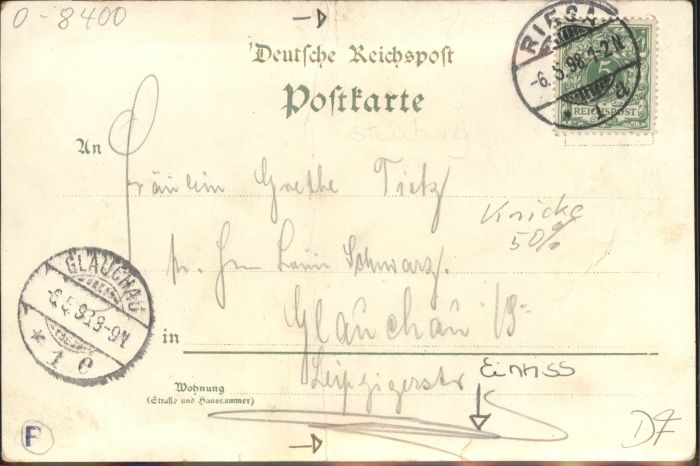 O-8400
Deutsche Reichspost
Postkarte
RIESA
-6.5.98.1-2N.
* 1 a
5
REICHSPOST
An
Fräulein Grethe Tietz
Knicke
50%
pr. Schwarz.
GLAUCHAU
-6.5.98.8-9N.
* 1 e
in
Glauchau
Leipzigerstr
Einriss
Wohnung
(Straße und Hausnummer)
F
D7